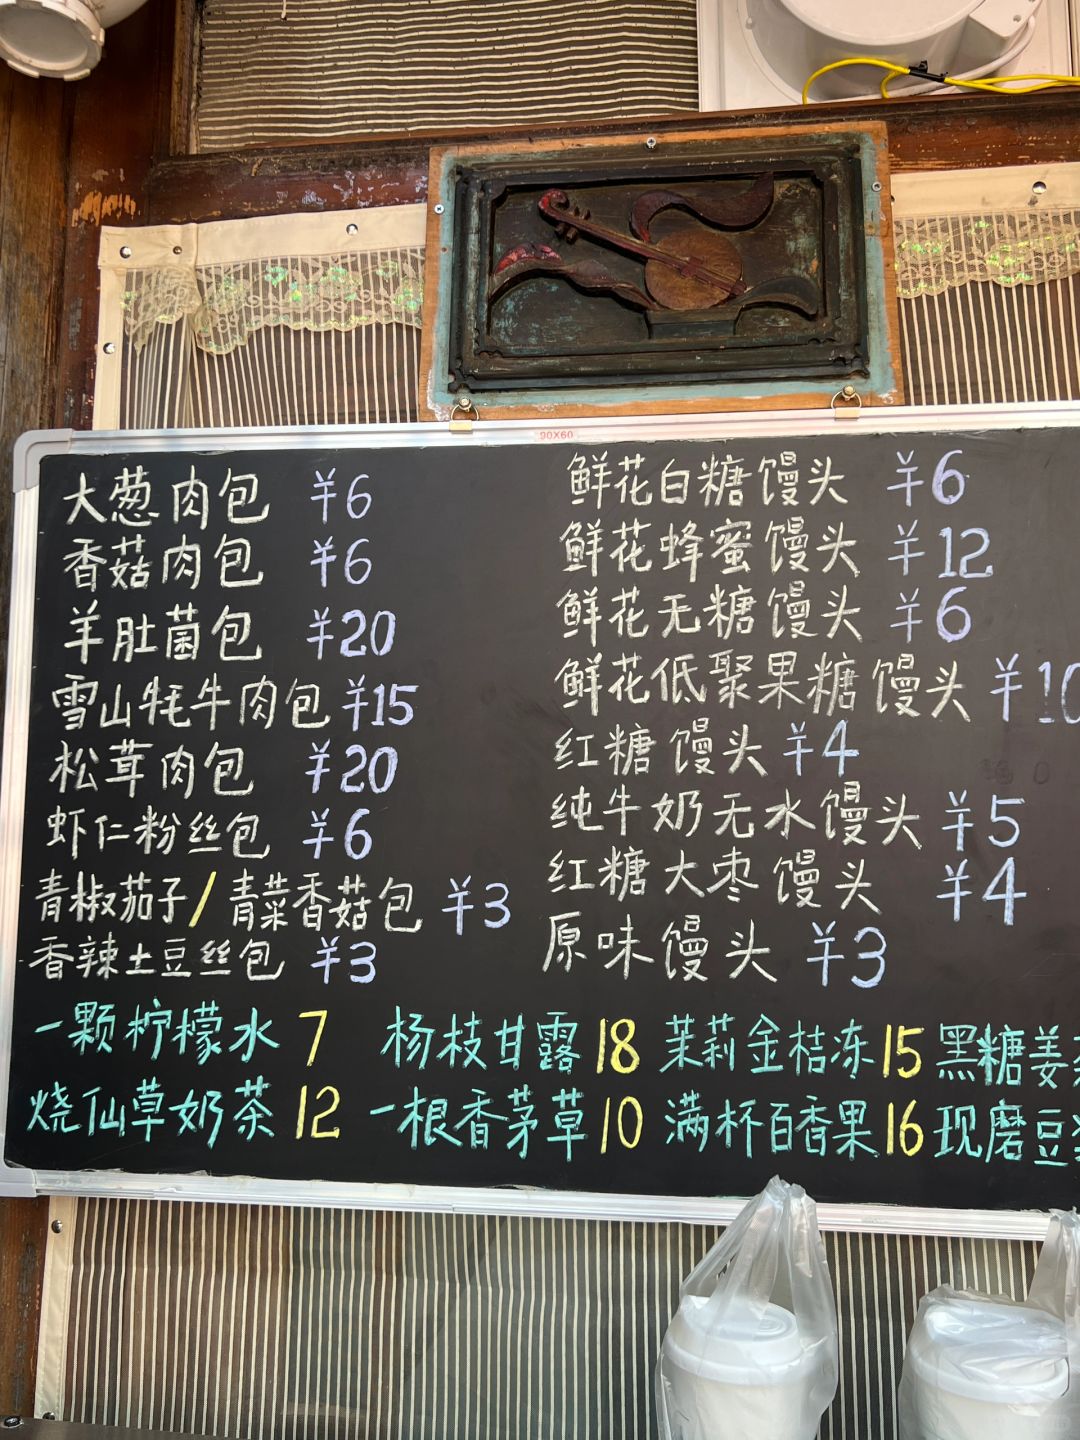 90X60
大葱肉包 ¥6
香菇肉包 ¥6
羊肚菌包 ¥20
雪山牦牛肉包 ¥15
松茸肉包 ¥20
虾仁粉丝包 ¥6
青椒茄子/青菜香菇包 ¥3
香辣土豆丝包 ¥3
鲜花白糖馒头 ¥6
鲜花蜂蜜馒头 ¥12
鲜花无糖馒头 ¥6
鲜花低聚果糖馒头 ¥10
红糖馒头 ¥4
纯牛奶无水馒头 ¥5
红糖大枣馒头 ¥4
原味馒头 ¥3
一颗柠檬水 7 杨枝甘露 18 茉莉金桔冻 15 黑糖姜
烧仙草奶茶 12 一根香茅草 10 满杯百香果 16 现磨豆